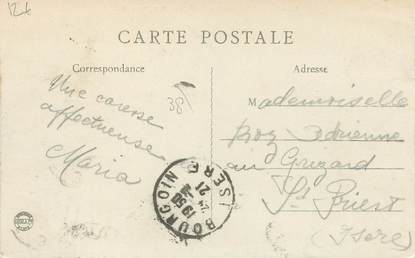 CARTE POSTALE
Correspondance
Adresse
38
Une caresse
affectueuse
Maria
Mademoiselle
Adrienne
au Guzard
St Priest
(Isère)
BOURGOIN
ISERE